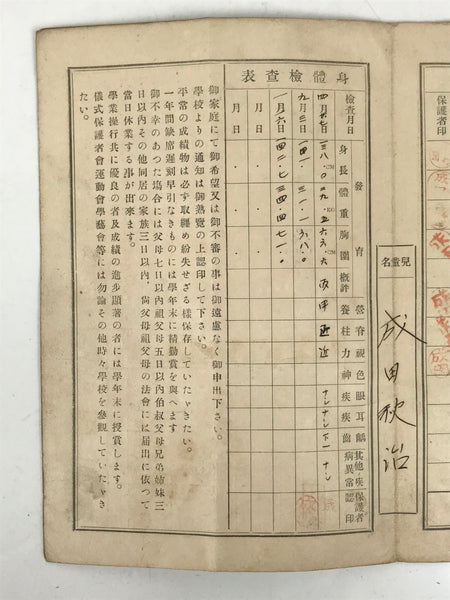 保護者印
兒童名
成田
身體檢查表
檢查月日
發育
身長
體重
胸圍
概評
營養
脊柱
視力
色神
眼疾
耳疾
齲齒
其他ノ疾病異常
保護者認印
四月廿七日 一三八.〇 二九.五 六六.六 丙 甲 正 正 ナシ ナシ 下一 ナシ
九月三日 一四一. 三一.一 六八.〇
一月六日 四二.七 三四.四 七一.〇
月 日
月 日
御家庭にて御希望又は御不審の事は御遠慮なく御申出下さい。
學校よりの通知は御熟覽の上認印して下さい。
平常の成績物は必ず取纒め紛失せざる樣保存していたゞきたい。
一年間缺席遲刻早引なきものには學年末に精勤賞を與へます
御不幸のあつた場合には父母七日以內祖父母五日以內伯叔父母兄弟姉妹三
日以內その他同居の家族三日以內、尙父母祖父母の法會には屆出に依つて
當日休業する事が出來ます。
學業操行共に優良の者及成績の進步顯著の者には學年末に授賞します。
儀式保護者會運動會學藝會等には勿論その他時々學校を參觀していたゞき
たい。